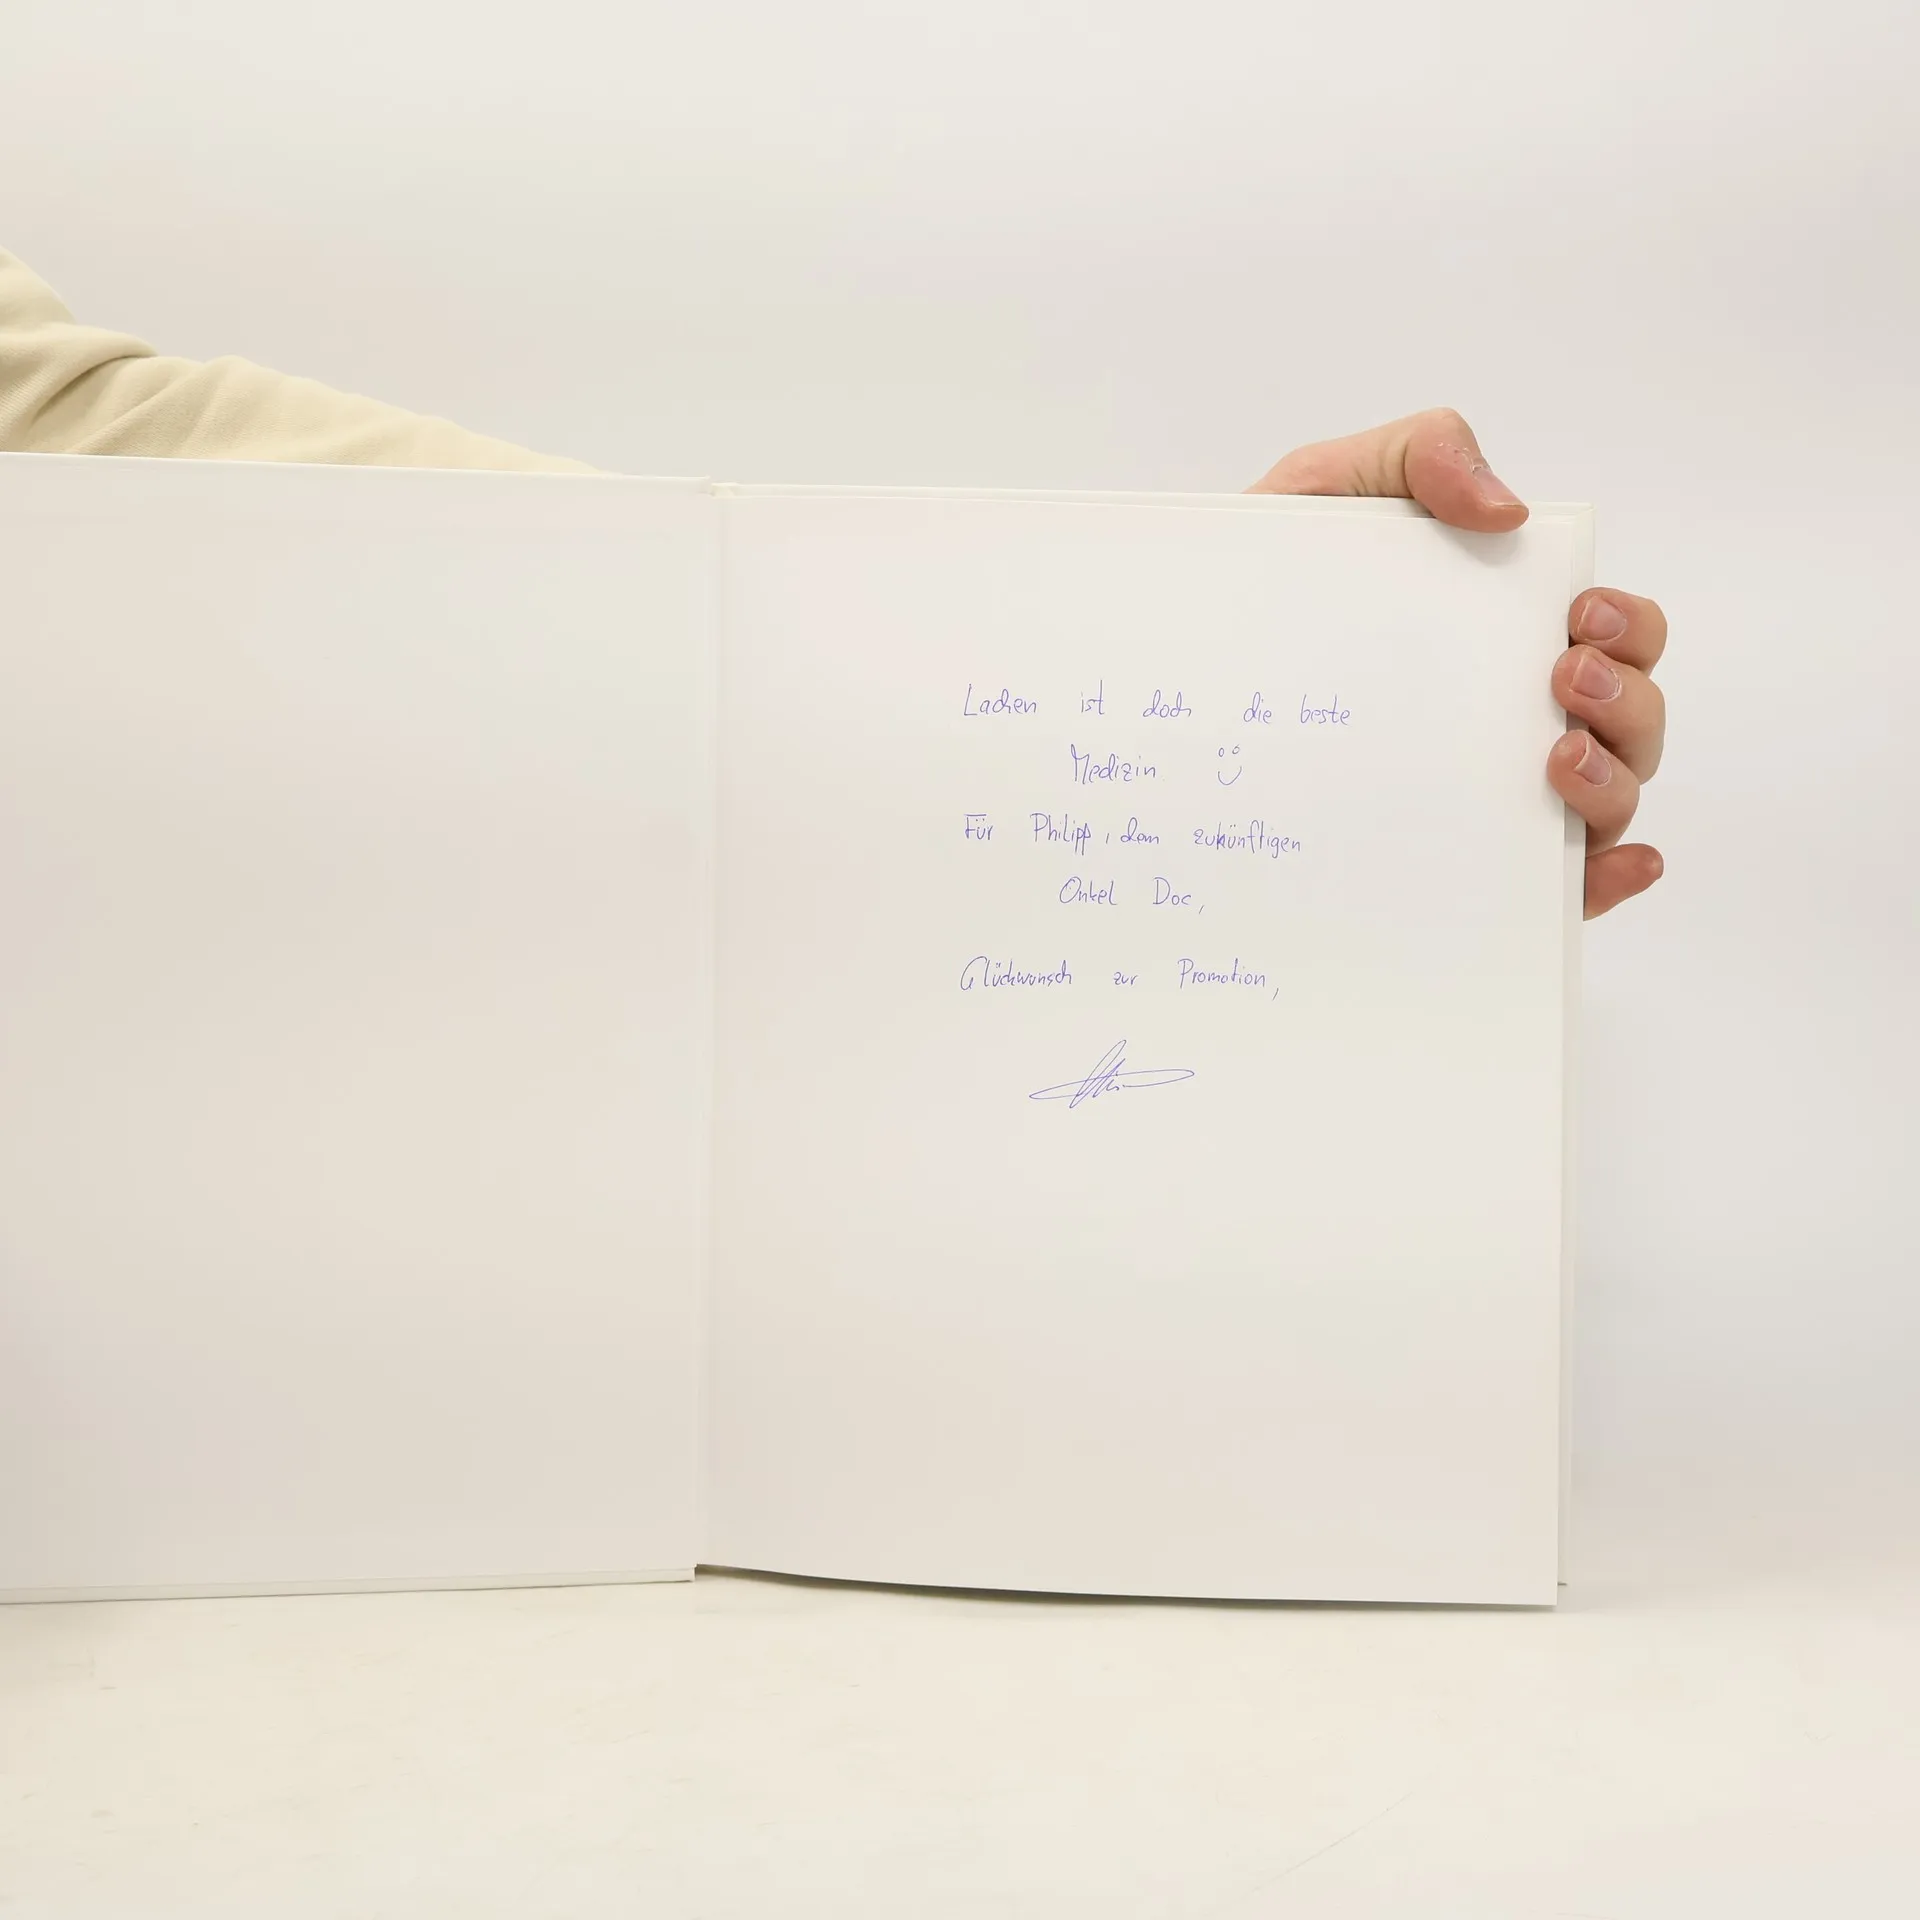 Lachen ist doch die beste
Medizin.
Für Philipp, dem zukünftigen
Onkel Doc,
Glückwunsch zur Promotion,